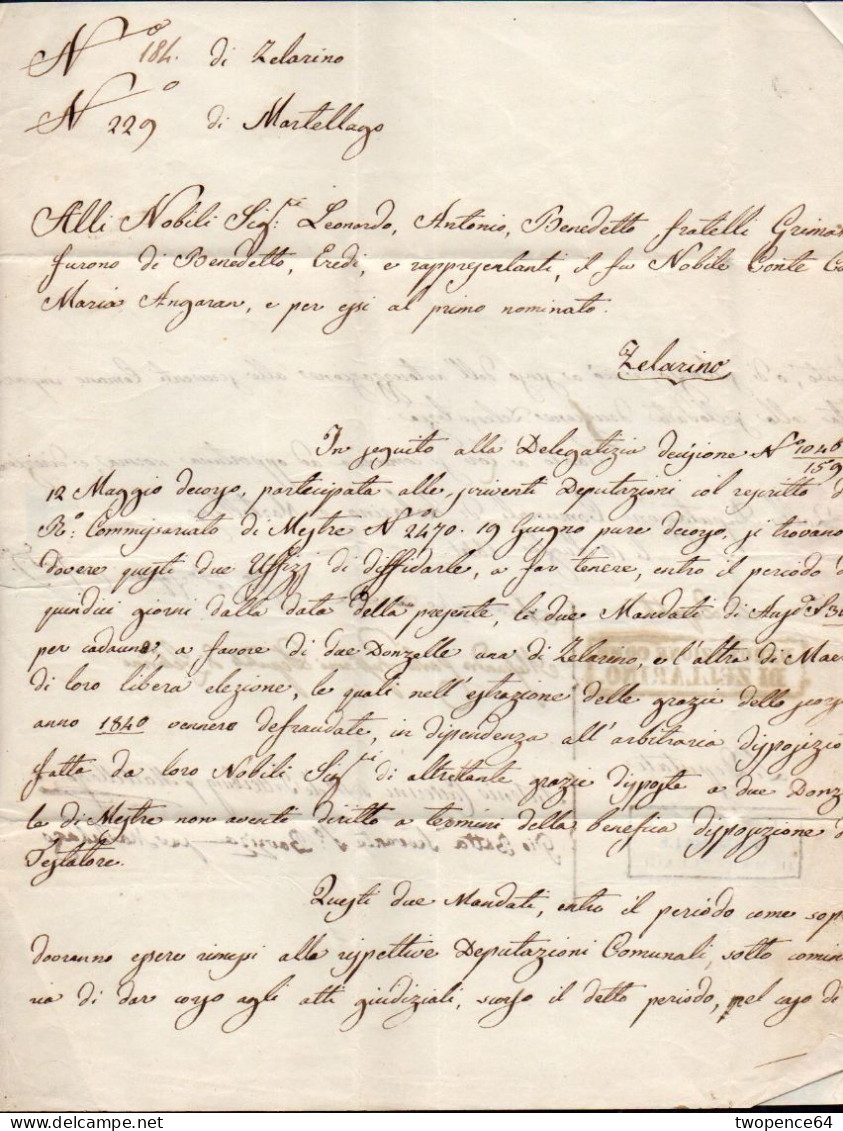 N.º 184. di Zelarino
N.º 229 di Martellago
Alli Nobili Sig.ri Leonardo, Antonio, Benedetto, fratelli Grima
furono di Benedetto, Eredi, e rappresentanti, il fu Nobile Conte
Maria Angaran, e per essi al primo nominato.
Zelarino
In seguito alla Delegatizia decisione N.º 1046/159
12 Maggio decorso, partecipata alle scriventi Deputazioni col rescritto
R.º Commissariato di Mestre N.º 2470. 19 Giugno pure decorso, si trovano
dovere questi due Uffizj di diffidarle, a far tenere, entro il periodo d
quindici giorni dalla data della presente, li due Mandati di
per cadauno, a favore di due Donzelle una di Zelarino, e l'altra di Maer
di loro libera elezione, le quali nell'estrazione delle grazie dello scorso
anno 1840 vennero defraudate, in dipendenza all'arbitraria disposizio
fatta da loro Nobili Sig.ri di altrettante grazie disposte a due Donze
le di Mestre non aventi diritto a termini della benefica disposizione d
Testatore.
Questi due Mandati, entro il periodo come sop
dovranno essere rimessi alle rispettive Deputazioni Comunali, sotto comin
ria di dar corso agli atti giudiziali, scorso il detto periodo, nel caso di
DI ZELLARINO
www.delcampe.net
twopence64